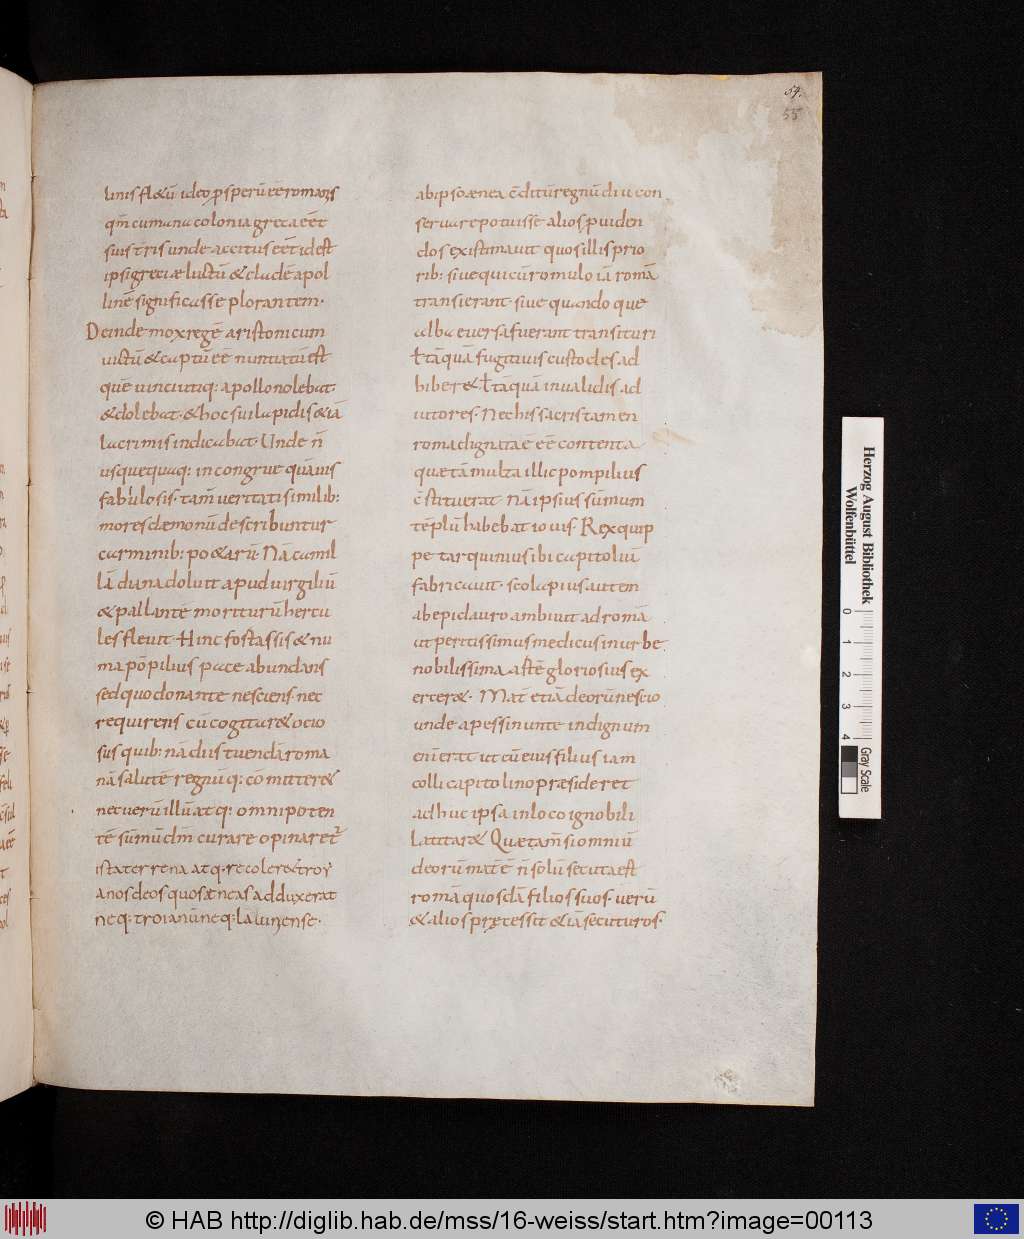 54.
55
linis fl&ū ideo ꝑsperū eē romanis
qm̄ cumana colonia greca eēt
suis tris unde accitus eēt id est
ipsi greciæ luctū & cladē apol
linē significasse plorantem·
Deinde mox regē aristonicum
uictū & captū eē nuntiatū est
quē uinci utiq: apollo nolebat
& dolebat· & hoc sui lapidis &iā
lacrimis indicabat· Unde n̄
usquequaq: incongrue quāuis
fabulosis· tam̄ ueritati similib:
mores dæmonū describuntur
carminib: po&arū· Nā camil
lā diana doluit apud uirgiliū
& pallantē moriturū hercu
les fleuit· Hinc fortassis & nu
ma pōpilius pace abundans
sed quo donante nesciens· nec
requirens cū cogitar& ocio
sus quib:nā diis tuendā roma
nā salutē regnūq: comitter&
nec uerū illū atq: omnipoten
tē sūmū dm̄ curare opinaret᷑
ista terrena atq· recoler& troy
anos deos quos æneas adduxerat
neq: troianū neq: lauinense·
ab ipso ænea c̄ditū regnū diu con
seruare potuisse alios ꝓuiden
dos existimauit quos illis prio
rib: siue qui cū romulo iā romā
transierant· siue quando que
alba euersa fuerant transituri
ł tāquā fugitiuis custodes ad
hiber& ł tāquā inualidis ad
iutores· Nec his sacris tamen
roma dignata ē eē contenta
quæ tā multa illic pompilius
c̄stituerat· nā ipsius sūmum
tēplū habebat iouis· Rex quip
pe tarquinius ibi capitoliū
fabricauit· scolapius autem
ab epidauro ambiuit ad romā
ut peritissimus medicus in urbe
nobilissima artē gloriosius ex
ercer&· Mat̄ etiā deorū nescio
unde a pessinunte indignum
enī erat ut cū eius filius iam
colli capitolino præsideret
adhuc ipsa in loco ignobili
latitar&· Quæ tam̄ si omniū
deorū mat̄ ē n̄ solū secuta est
romā quosdā filios suos· uerū
& alios precessit &iā secuturos·
Herzog August Bibliothek
Wolfenbüttel
0 1 2 3 4
Gray Scale
© HAB http://diglib.hab.de/mss/16-weiss/start.htm?image=00113